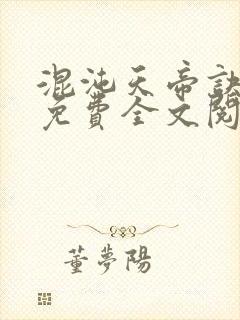 混沌天帝訣
免費全文閱
董夢陽